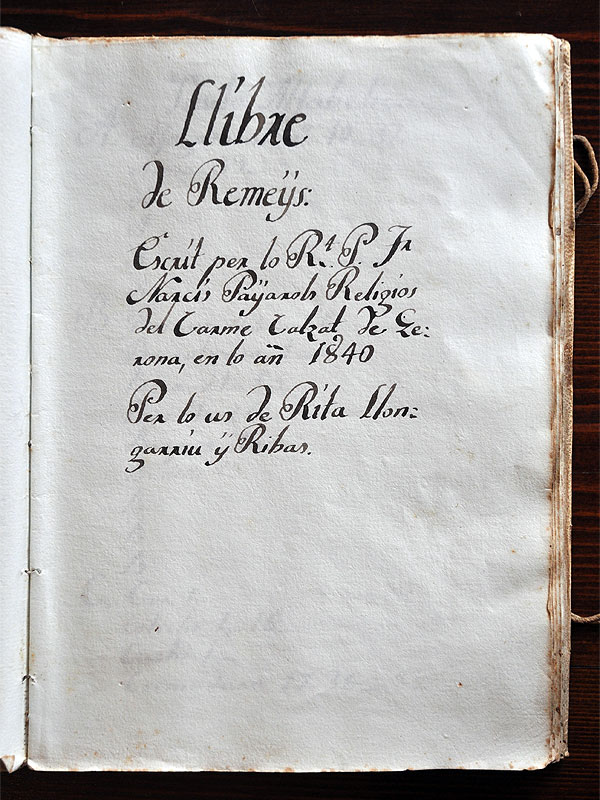 Llibre
de Remeÿs:
Escrit per lo R.t P. Fr
Narcis Paÿarols Religiós
del Carme Calzat de Ge:
rona, en lo añ 1840
Per lo us de Rita Llon:
garriu ÿ Ribas.